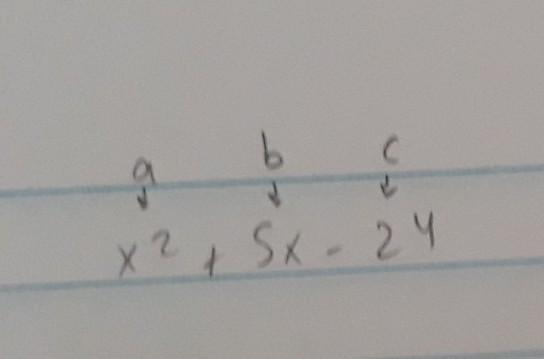 a b c
↓ ↓ ↓
x² + 5x - 24